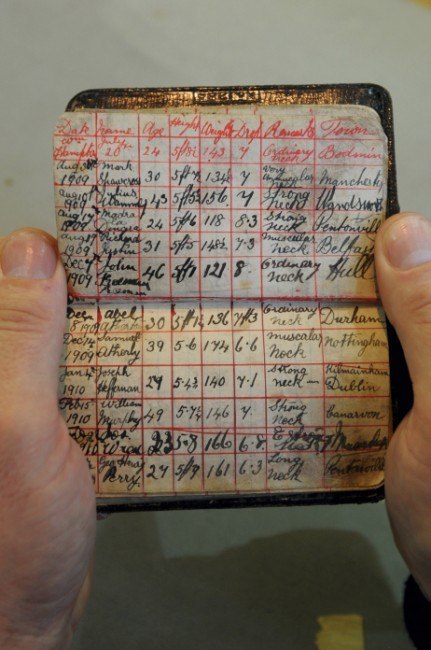 Date Name Age Height Weight Drop Remarks Town
Wm July
Hampton 20 24 5/5½ 143 7 Ordinary neck Bodmin
Aug 3 Mark very
1909 Shawcross 30 5/7 134 7 muscular neck Manchester
Aug 19 Julius Strong
1909 Wammer 43 5/5¾ 156 7 neck Wandsworth
Aug 17 Madra Strong
1909 24 5/6 118 8.3 neck Pentonville
Aug 19 Richard muscular
1909 Justin 31 5/5 148½ 7.3 neck Belfast
Dec 7 John Ordinary
1909 Freeman 46 5/1 121 8. neck Hull
Dec Abel Ordinary
8 1909 Atherton 30 5/1½ 136 7/3 neck Durham
Dec 14 Samuel muscular
1909 Atherly 39 5.6 174 6.6 neck Nottingham
Jan 4 Joseph Strong Kilmainham
1910 Heffernan 27 5.4½ 140 7.1 neck Dublin
Feb 15 William Strong
1910 Murphy 49 5.7½ 146 7. neck Canarvon
Jos
1910 Wren 23 5.8 166 6.8.
Geo Henry Long
Perry 27 5/9 161 6.3 neck Pentonville